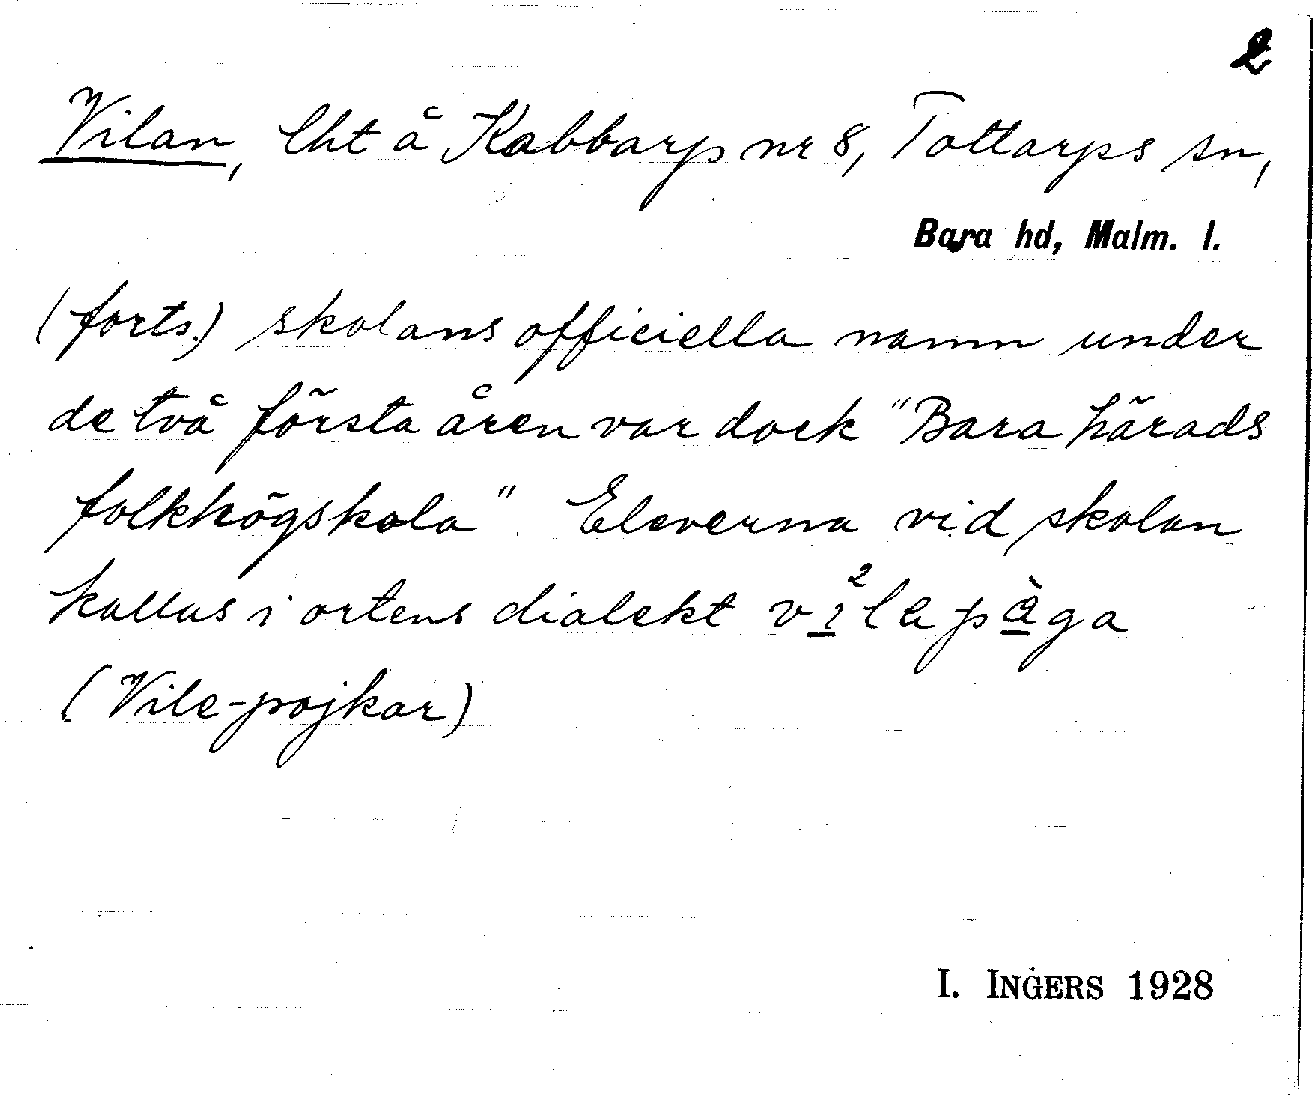 2
Vilan, lht å Kabbarp nr 8, Tottarps sn,
Bara hd, Malm. l.
(forts.) skolans officiella namn under
de två första åren var dock "Bara härads
folkhögskola". Eleverna vid skolan
kallas i ortens dialekt vilapåga
(Vile-pojkar)
I. INGERS 1928